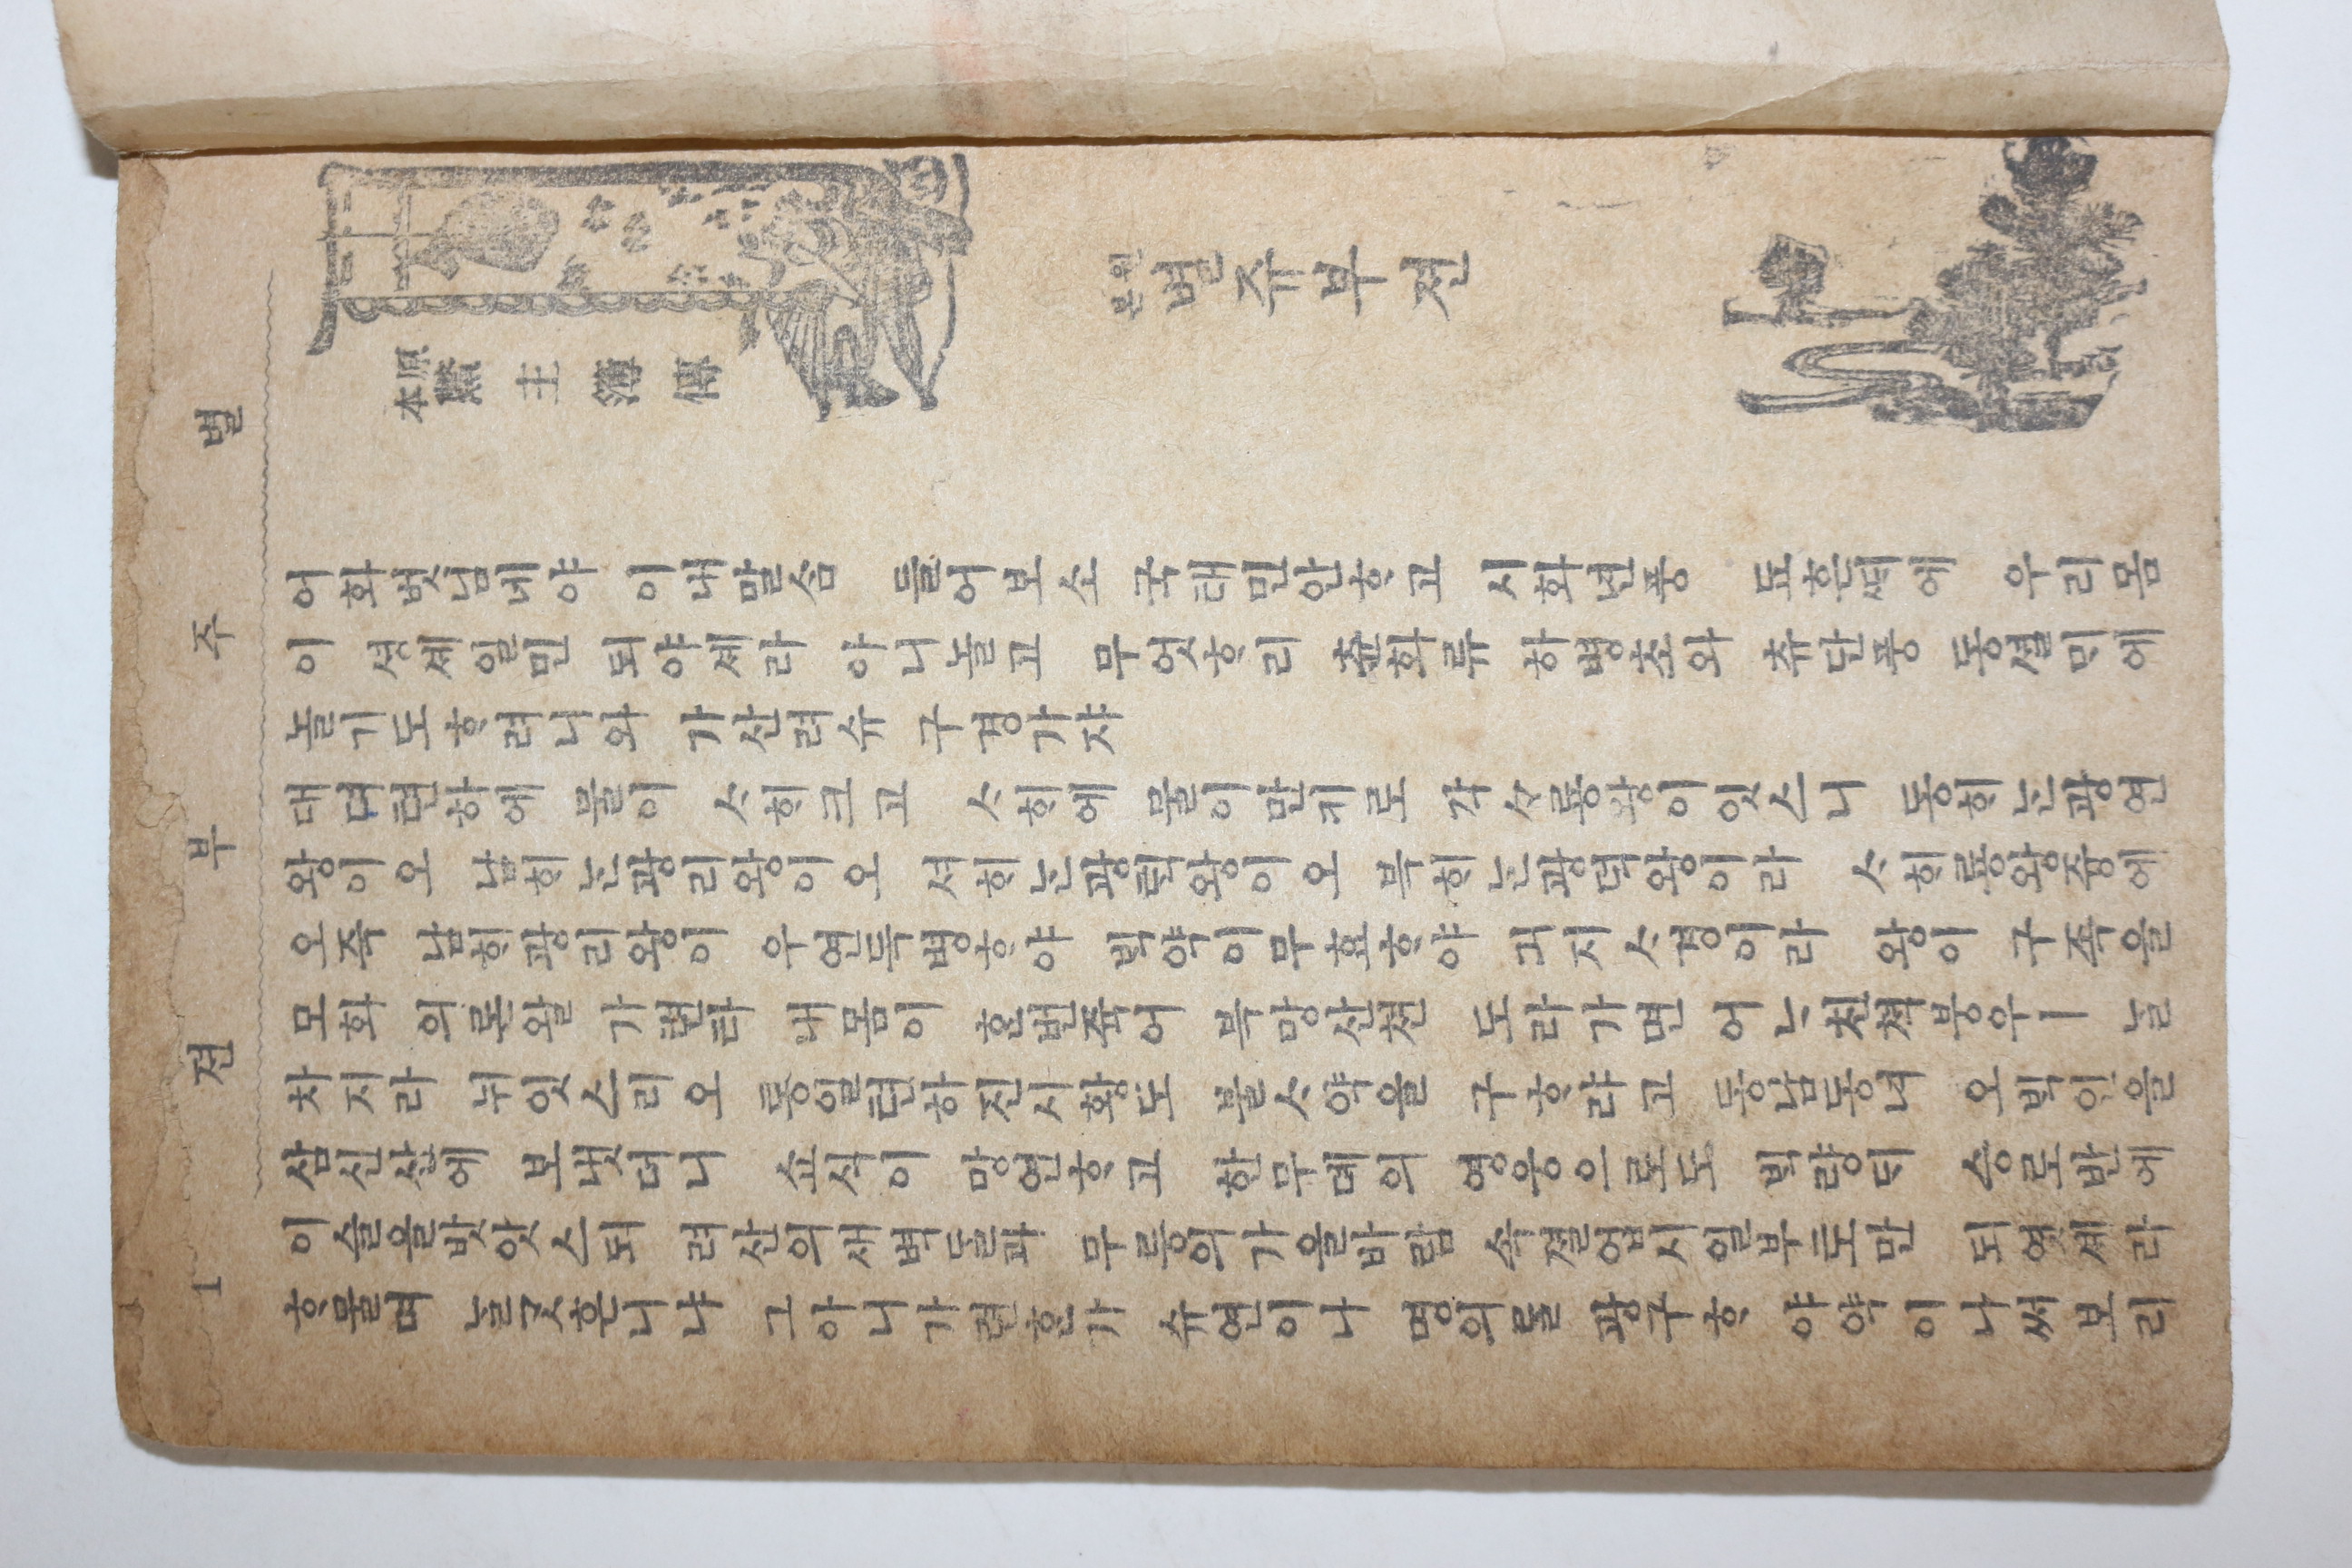 原本 鼈主簿傳
원본 별쥬부젼
어화벗님네야 이내말삼 들어보소 국태민안ᄒᆞ고 시화년풍 됴흔ᄯᅢ에 우리몸
이 셩셰일민 되야셰라 아니놀고 무엇ᄒᆞ리 츈화류 하방초와 츄단풍 동셜ᄆᆡ에
놀기도ᄒᆞ려니와 가산려슈 구경가쟈
대뎌텬하에 물이 ᄉᆞᄒᆡ크고 ᄉᆞᄒᆡ에 물이만키로 각ᄉᆞ룡왕이잇스니 동ᄒᆡᄂᆞᆫ광연
왕이오 남ᄒᆡᄂᆞᆫ광리왕이오 셔ᄒᆡᄂᆞᆫ광턱왕이오 북ᄒᆡᄂᆞᆫ광덕왕이라 ᄉᆞᄒᆡ룡왕즁에
오즉 남ᄒᆡ광리왕이 우연득병ᄒᆞ야 ᄇᆡᆨ약이무효ᄒᆞ야 긔지ᄉᆞ경이라 왕이 구족을
모화 의론왈 가련타 내몸이 ᄒᆞᆫ번죽어 북망산쳔 도라가면 어ᄂᆞ친쳑붕우ㅣ 날
차지라 뉘잇스리오 통일텬하진시황도 불ᄉᆞ약을 구ᄒᆞ랴고 동남동녀 오ᄇᆡᆨ인을
삼신산에 보냇더니 쇼식이 망연ᄒᆞ고 한무뎨의 영웅으로도 ᄇᆡᆨ량ᄃᆡ 승로반에
이슬을밧앗스되 려산의새벽달과 무릉의가을바람 속졀업시일부토만 되엿셰라
ᄒᆞ물며 날ᄀᆞᆺᄒᆞᆫ니냐 그아니가련ᄒᆞᆫ가 슈연이나 명의를 광구ᄒᆞ 야약이나써보리
별 주 부 젼
1